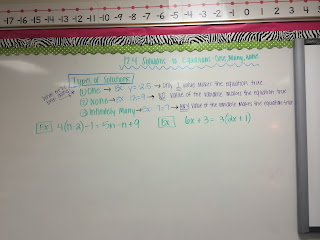 -17 -16 -15 -14 -13 -12 -11 -10 -9 -8 -7 -6 -5 -4 -3 -2 -1 0 1 2 3 4 5
12.4 Solutions to Equations: One, Many, None
Types of Solutions
① One → ex: y = 2.5 → only 1 value makes the equation true
② None → ex: 12=9 → NO value of the variable makes the equation true
③ Infinitely Many → ex: 7=7 → ANY value of the variable makes the equation true
Ex 4(n-2)-1=5n-n+9
Ex 6x+3=3(2x+1)